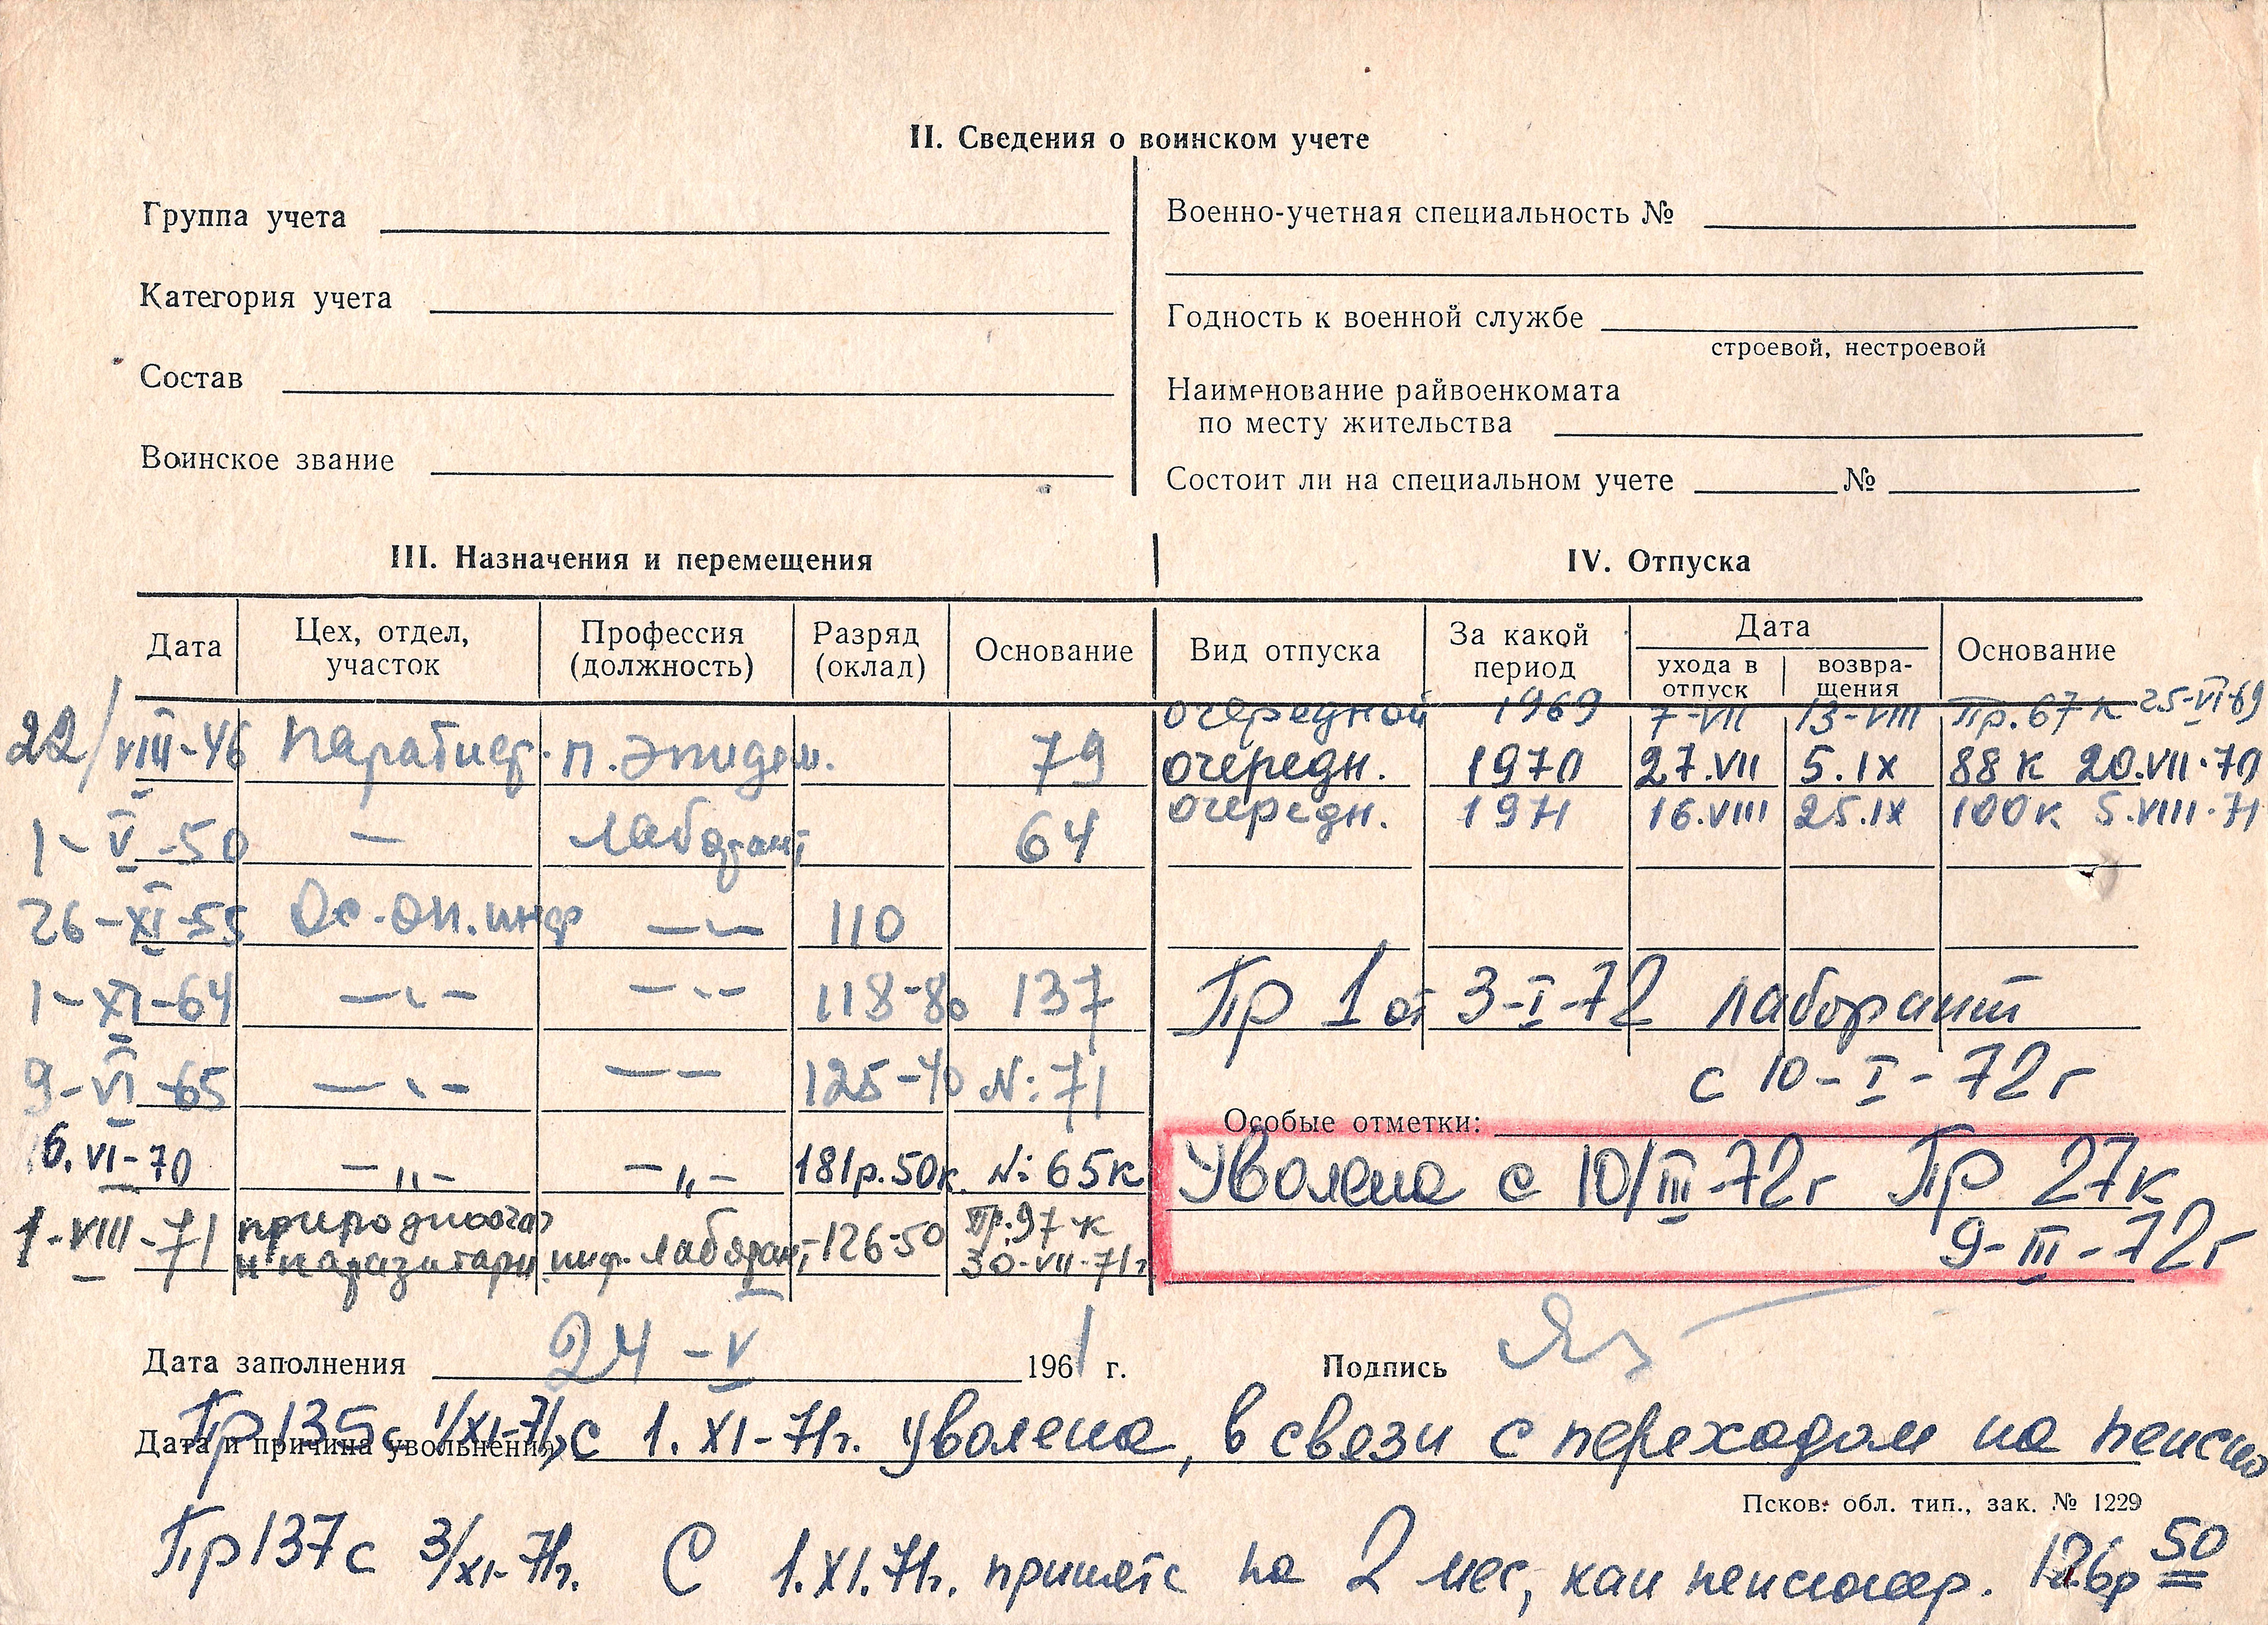 II. Сведения о воинском учете
Группа учета
Категория учета
Состав
Воинское звание
Военно-учетная специальность №
Годность к военной службе
строевой, нестроевой
Наименование райвоенкомата
по месту жительства
Состоит ли на специальном учете №
III. Назначения и перемещения
Дата Цех, отдел, участок Профессия (должность) Разряд (оклад) Основание
22/VIII-46 Паратиф. п. эпидем. 79
1-V-50 — лаборант 64
26-XI-55 Ос.-оп. инф —〃— 110
1-XI-64 —〃— —〃— 118-80 137
9-VI-65 —〃— —— 125-40 N: 71
6.VI-70 —〃— —〃— 181р.50к. N: 65к
1-VIII-71 природноочаг
и паразитарн инф. лаборант 126-50 Пр. 97 к
30-VII-71г
IV. Отпуска
Вид отпуска За какой период Дата ухода в отпуск возвра-
щения Основание
очередной 1969 7-VII 13-VIII Пр. 67 к 25-VI-69
очередн. 1970 27.VII 5.IX 88 к 20.VII.70
очередн. 1971 16.VIII 25.IX 100к 5.VIII.71
Пр 1 от 3-I-72 лаборант
с 10-I-72г
Особые отметки:
Уволена с 10/III-72г Пр 27к
9-III-72г
Дата заполнения 24-V 1961 г. Подпись
Дата и причина увольнения
Пр 135 с 1/XI-71г, с 1.XI-71г. уволена, в связи с переходом на пенсию
Псков. обл. тип., зак. № 1229
Пр 137 с 3/XI-71г. С 1.XI.71г. принята на 2 мес, как пенсионер. 126р 50